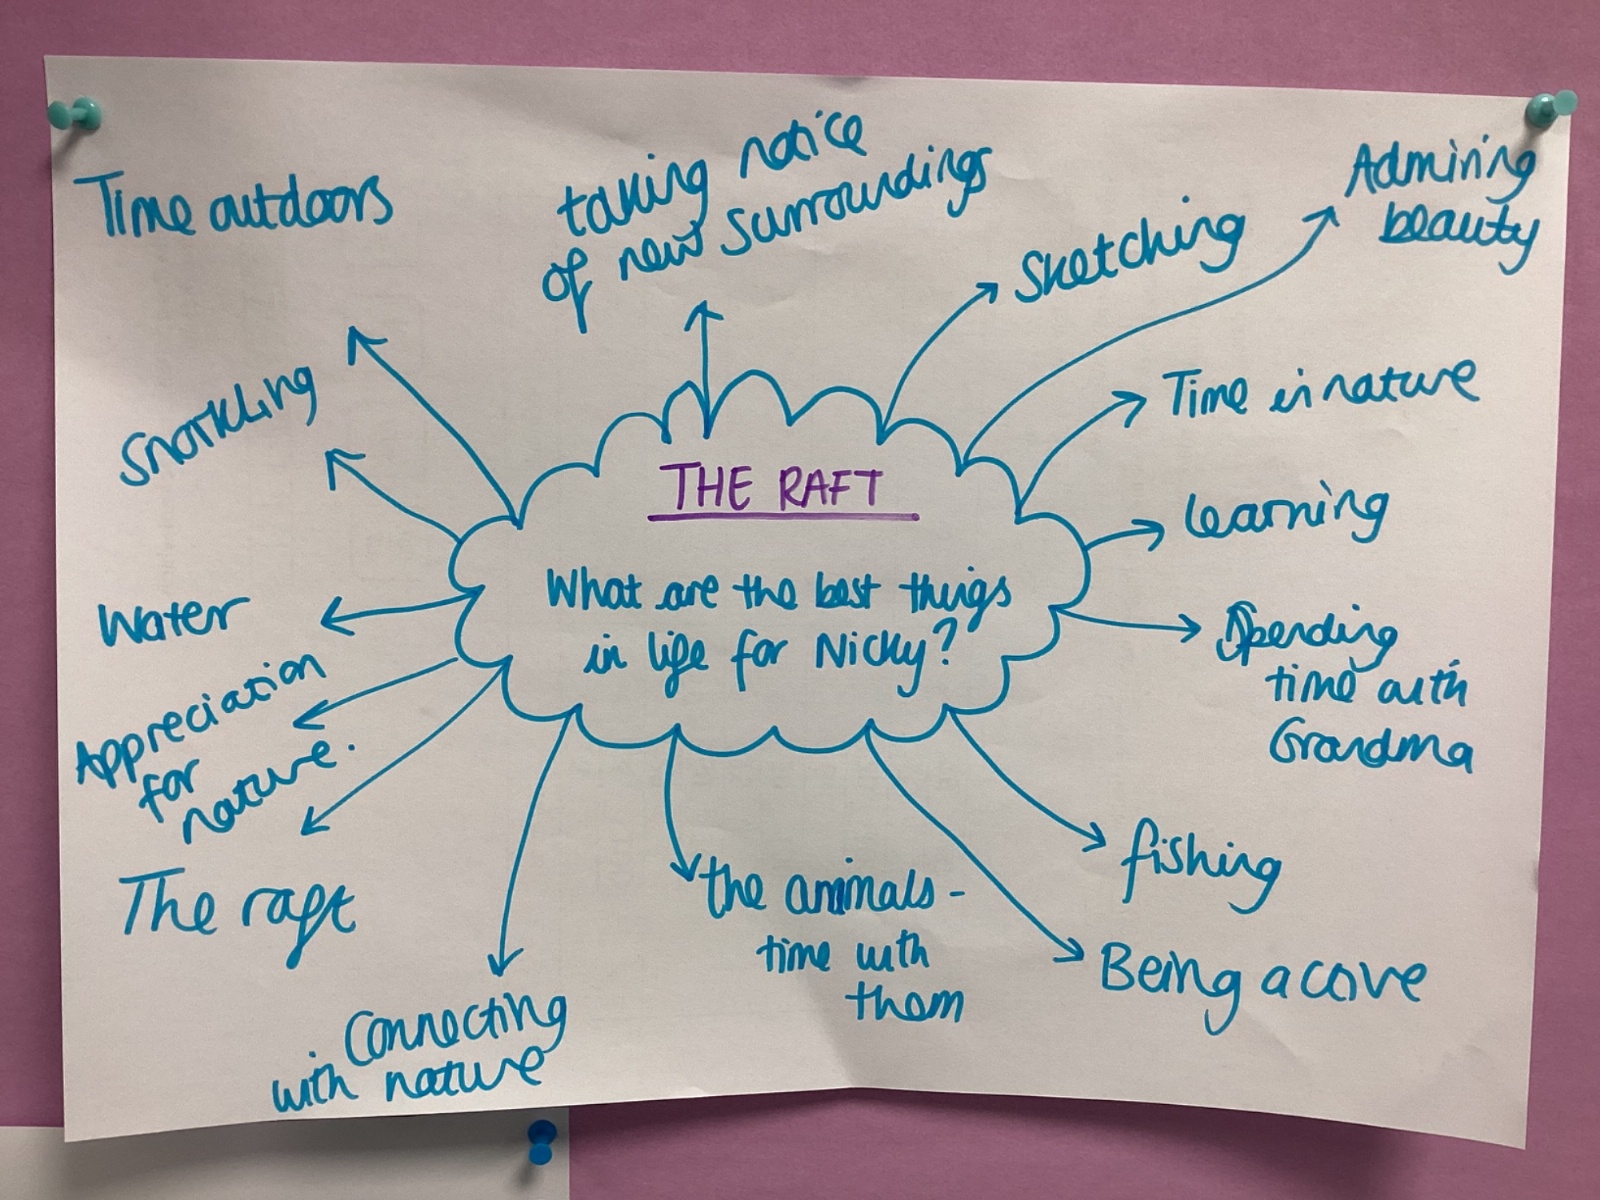 THE RAFT
What are the best things
in life for Nicky?
Time outdoors
taking notice
of new surroundings
Sketching
Admiring
beauty
Time in nature
Learning
Spending
time with
Grandma
fishing
Being a cove
the animals -
time with
them
Connecting
with nature
The raft
Appreciation
for
nature.
Water
Snorkling